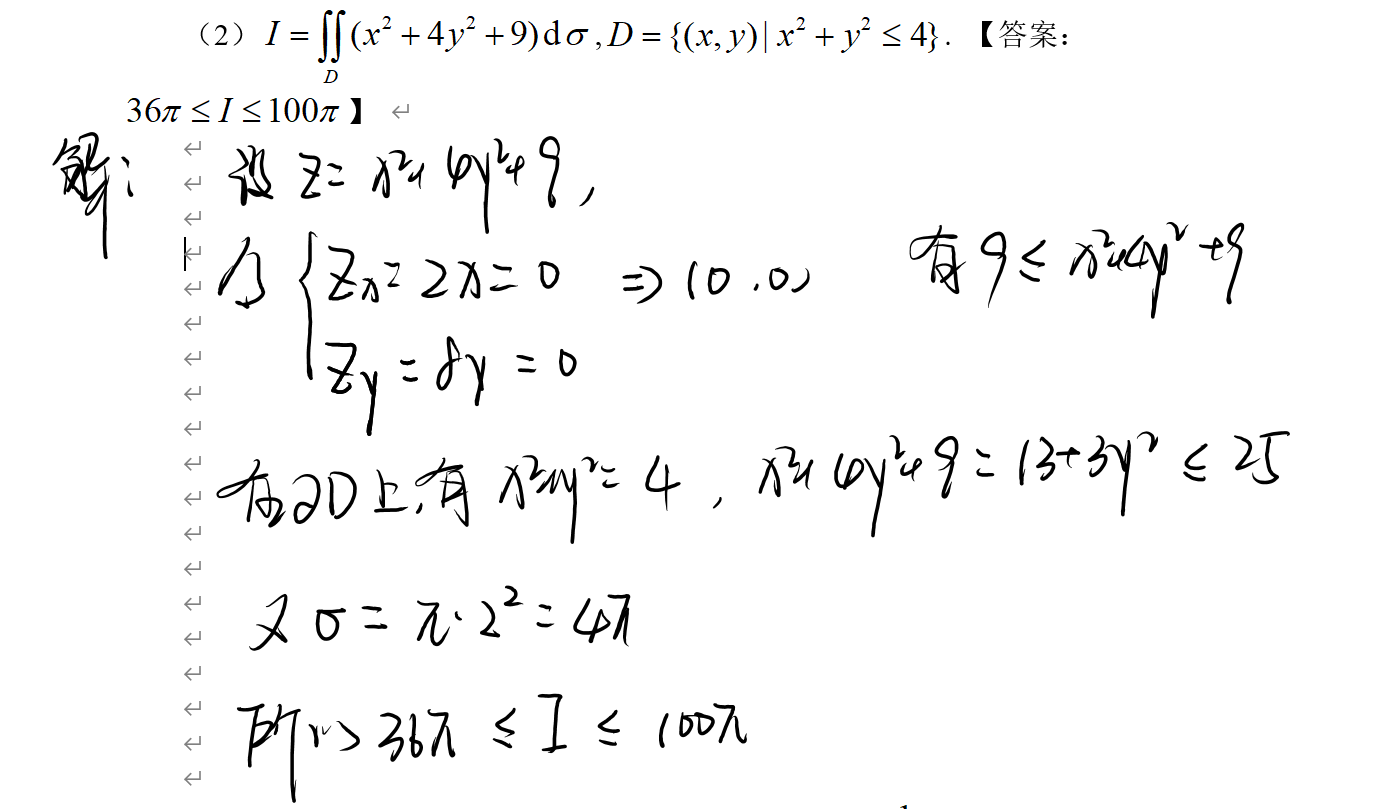 （2）I = ∬_D (x² + 4y² + 9)dσ, D = {(x, y) | x² + y² ≤ 4}. 【答案：
36π ≤ I ≤ 100π】
解： 设 z = x²+4y²+9,
令 { Zx = 2x = 0 ⇒ (0,0) 有 9 ≤ x²+4y²+9
Zy = 8y = 0
在∂D上,有 x²+y² = 4 , x²+4y²+9 = 13+3y² ≤ 25
又 σ = π·2² = 4π
所以 36π ≤ I ≤ 100π